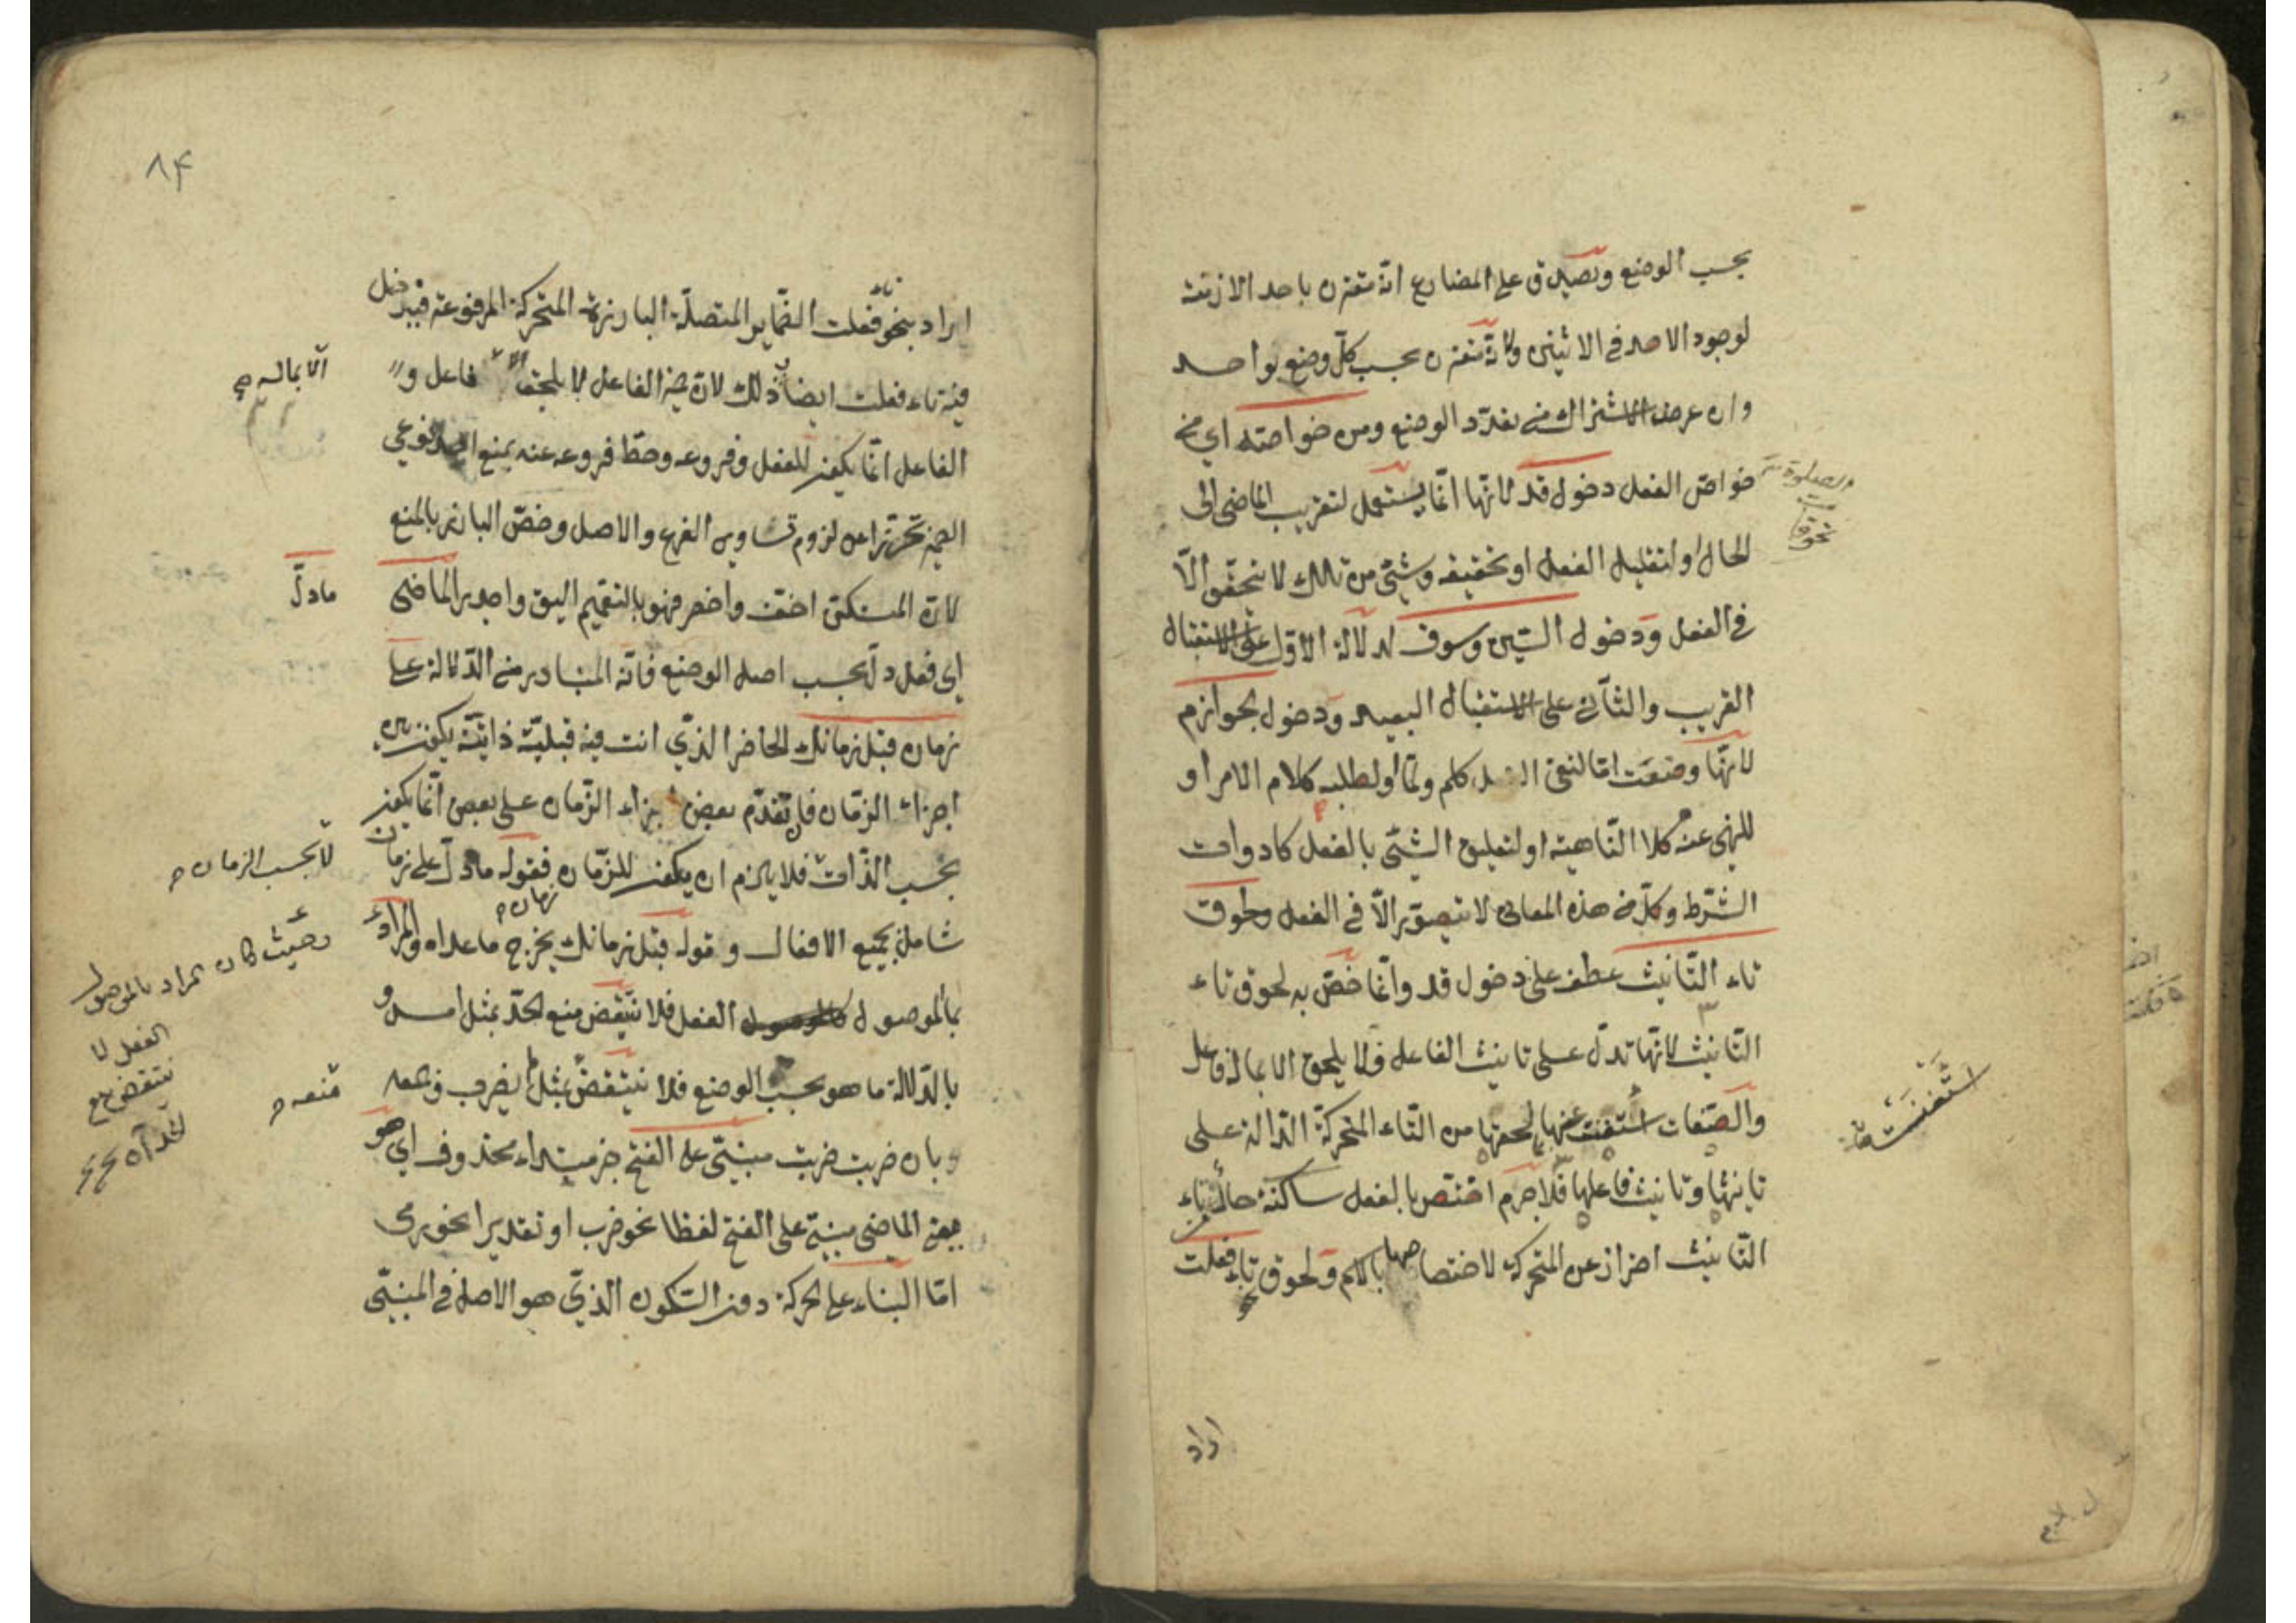 بحسب الوضع ويصدق على المضارع انه مقترن باحد الازمنة
لوجود الاحد في الاثنين ولانه مقترن بحسب كل وضع بواحد
وان عرض الاشتراك من تعدد الوضع ومن خواصه اي من
خواص الفعل دخول قد لانها انما يستعمل لتقريب الماضي الى
الحال او لتقليل الفعل او تحقيقه وشيئ من ذلك لا يتحقق الا
في الفعل ودخول السين وسوف لدلالة الاول على الاستقبال
القريب والثاني على الاستقبال البعيد ودخول الجوازم
لانها وضعت اما لنفي الفعل كلم ولما او لطلبه كلام الامر او
للنهى عنه كلا الناهية او لتعليق الشيئ بالفعل كادوات
الشرط وكل من هذه المعاني لا يتصور الا في الفعل ولحوق
تاء التانيث عطف على دخول قد وانما خص به لحوق تاء
التانيث لانها تدل على تانيث الفاعل فلا يلحق الا بماله فاعل
والصفات استغنت عنها بما لحقها من التاء المتحركة الدالة على
تانيثها وتانيث فاعلها فلا جرم اختص بالفعل ساكنة حال من تاء
التانيث احتراز عن المتحركة لاختصاصها بالاسم ولحوق تاء فعلت
استغنت
اراد
٨۴
اراد بنحو تاء فعلت الضماير المتصلة البارزة المتحركة المرفوعة فيدخل
فيه تاء فعلت ايضا وذلك لان ضمير الفاعل لا يلحق الا فاعل و
الا بماله
الفاعل انما يكون للفعل وفروعه وحط فروعه عنه بمنع احد نوعي
الضمير تحرزا عن لزوم تساوي الفرع والاصل وخص البارز بالمنع
لان المستكن اخف واخصر فهو بالتعميم اليق واجدر الماضي
ما دل
اي فعل دل بحسب اصل الوضع فانه المتبادر من الدلالة على
زمان قبل زمانك الحاضر الذي انت فيه قبلية ذاتية يكون بين
اجزاء الزمان فان تقدم بعض اجزاء الزمان على بعض انما يكون
بحسب الذات فلا يلزم ان يكون للزمان زمان فقوله ما دل على زمان
لا بحسب الزمان
شامل لجميع الافعال وقوله قبل زمانك يخرج ما عداه والمراد
بالموصول الفعل فلا ينتقض منع الحد بمثل امس و
وحيث كان المراد بالموصول
الفعل لا
ينتقض منع
بالدلالة ما هو بحسب الوضع فلا ينتقض بمثل لم يضرب
منعه
وبان ضربت ضربت مبني على الفتح خبر مبتداء محذوف اي هو
يعني الماضي مبني على الفتح لفظا نحو ضرب او تقديرا نحو رمى
اما البناء على الحركة دون السكون الذي هو الاصل في المبني